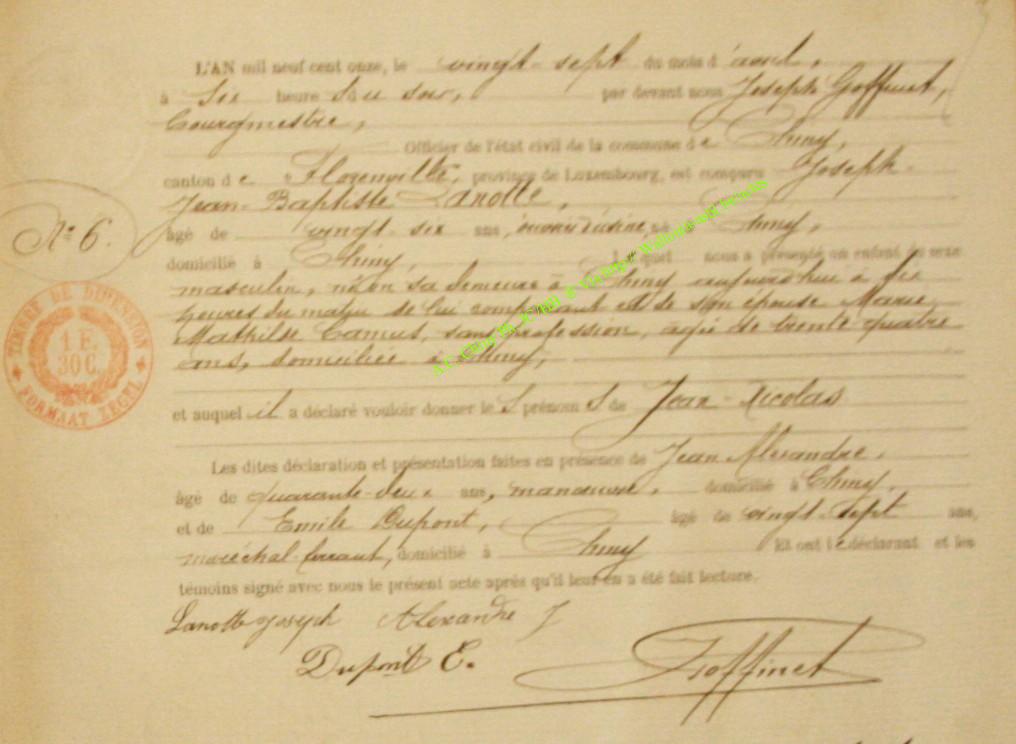 L'AN mil neuf cent onze, le vingt-sept du mois d'avril,
à Six heures du soir, par devant nous Joseph Goffinet,
bourgmestre,
Officier de l'état civil de la commune de Chiny,
canton de Florenville, province de Luxembourg, est comparu Joseph-
Jean-Baptiste Lanotte,
âgé de vingt-six ans, ouvrier d'usine, né à Chiny,
domicilié à Chiny, Lequel nous a présenté un enfant du sexe
masculin, né en sa demeure à Chiny aujourd'hui à six
heures du matin de lui comparant et de son épouse Marie
Mathilde Camus, sans profession, âgée de trente-quatre
ans, domiciliée à Chiny,
et auquel il a déclaré vouloir donner les prénoms de Jean-Nicolas
Les dites déclaration et présentation faites en présence de Jean Alexandre,
âgé de quarante-deux ans, manoeuvre, domicilié à Chiny,
et de Emile Dupont, âgé de vingt-sept ans,
maréchal-ferrant, domicilié à Chiny Et ont le déclarant et les
témoins signé avec nous le présent acte après qu'il leur en a été fait lecture.
Lanotte Joseph Alexandre J
Dupont E.
Goffinet
N° 6.
TIMBRE DE DIMENSION
1 F.
30 C.
FORMAAT ZEGEL